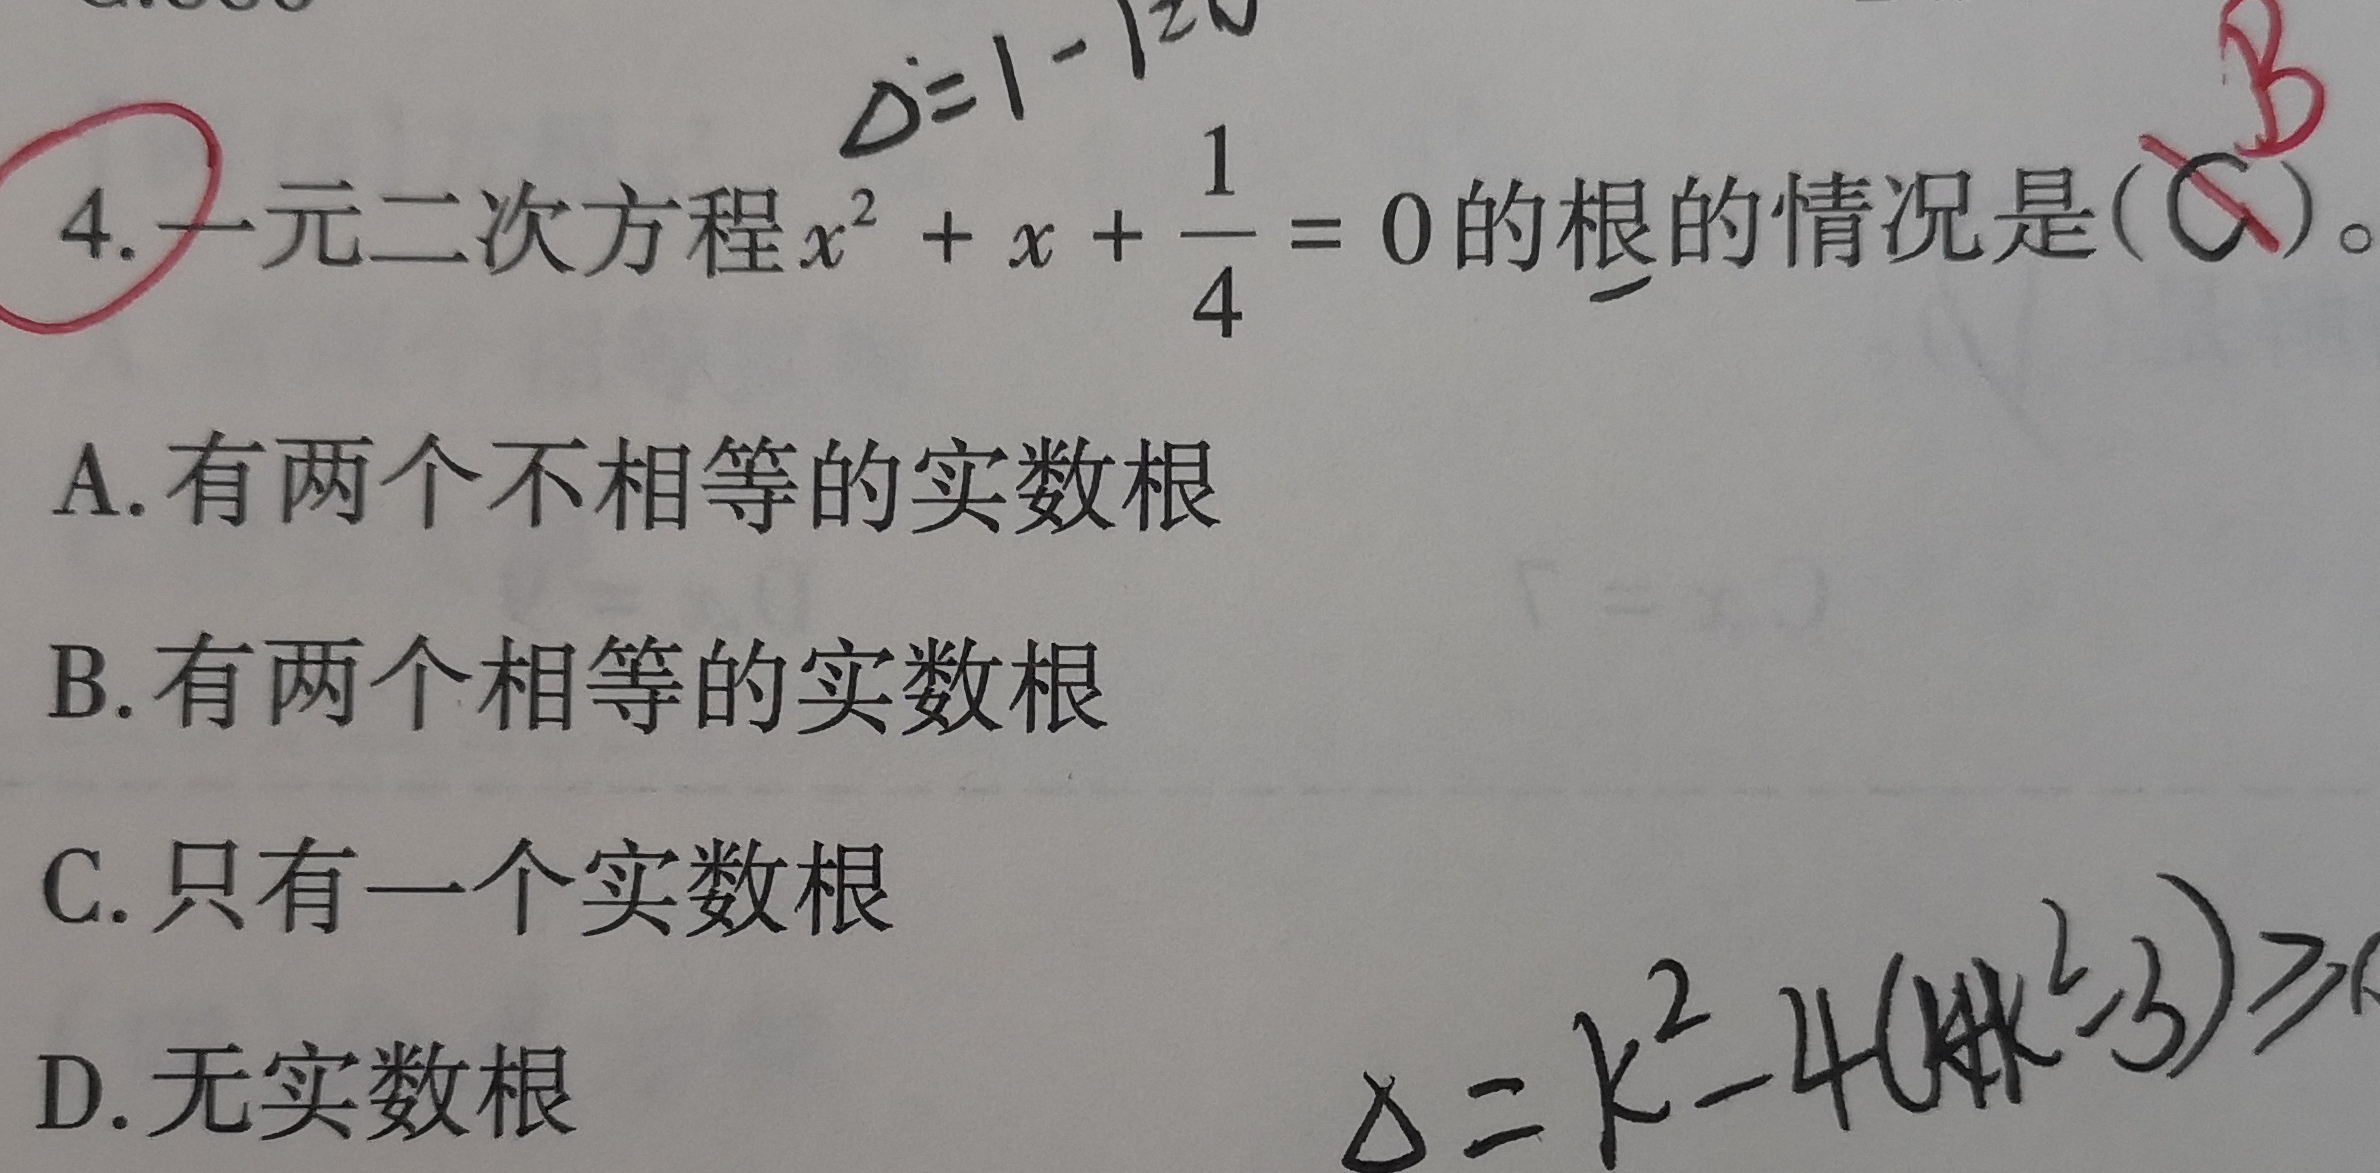 Δ=1-1=0
B
4.一元二次方程x² + x + 1/4 = 0的根的情况是(C)。
A.有两个不相等的实数根
B.有两个相等的实数根
C.只有一个实数根
D.无实数根
Δ=k²-4(k²-3)≥